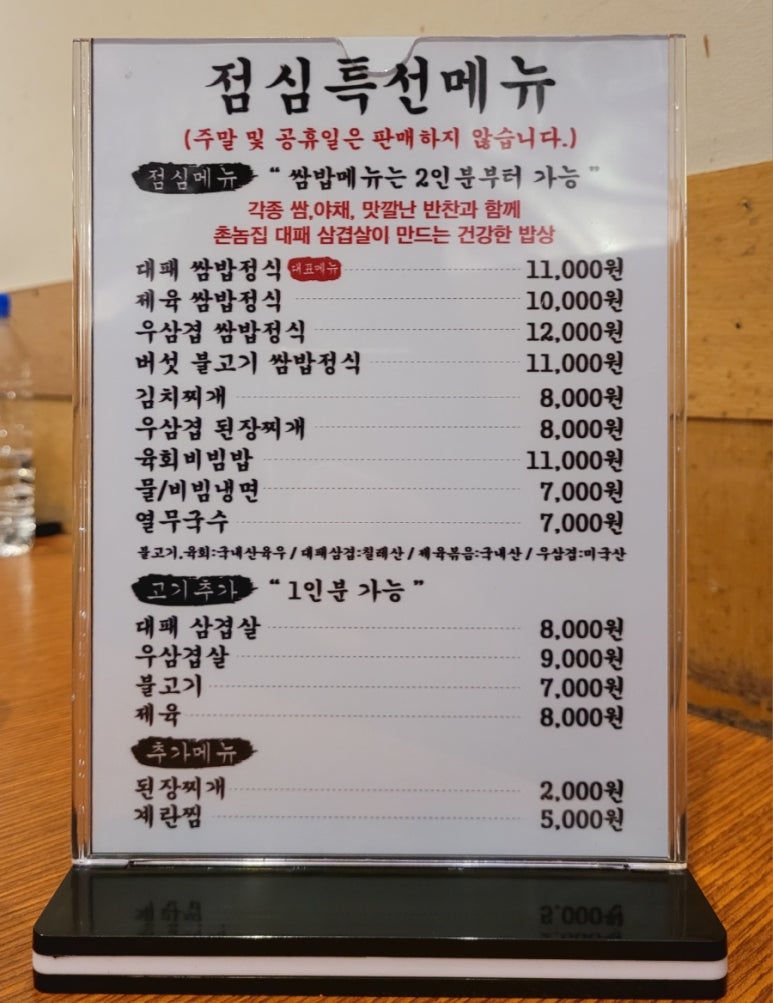 점심특선메뉴
(주말 및 공휴일은 판매하지 않습니다.)
점심메뉴 " 쌈밥메뉴는 2인분부터 가능 "
각종 쌈,야채, 맛깔난 반찬과 함께
촌놈집 대패 삼겹살이 만드는 건강한 밥상
대패 쌈밥정식 대표메뉴 11,000원
제육 쌈밥정식 10,000원
우삼겹 쌈밥정식 12,000원
버섯 불고기 쌈밥정식 11,000원
김치찌개 8,000원
우삼겹 된장찌개 8,000원
육회비빔밥 11,000원
물/비빔냉면 7,000원
열무국수 7,000원
불고기,육회:국내산육우 / 대패삼겹:칠레산 / 제육볶음:국내산 / 우삼겹:미국산
고기추가 " 1인분 가능 "
대패 삼겹살 8,000원
우삼겹살 9,000원
불고기 7,000원
제육 8,000원
추가메뉴
된장찌개 2,000원
계란찜 5,000원